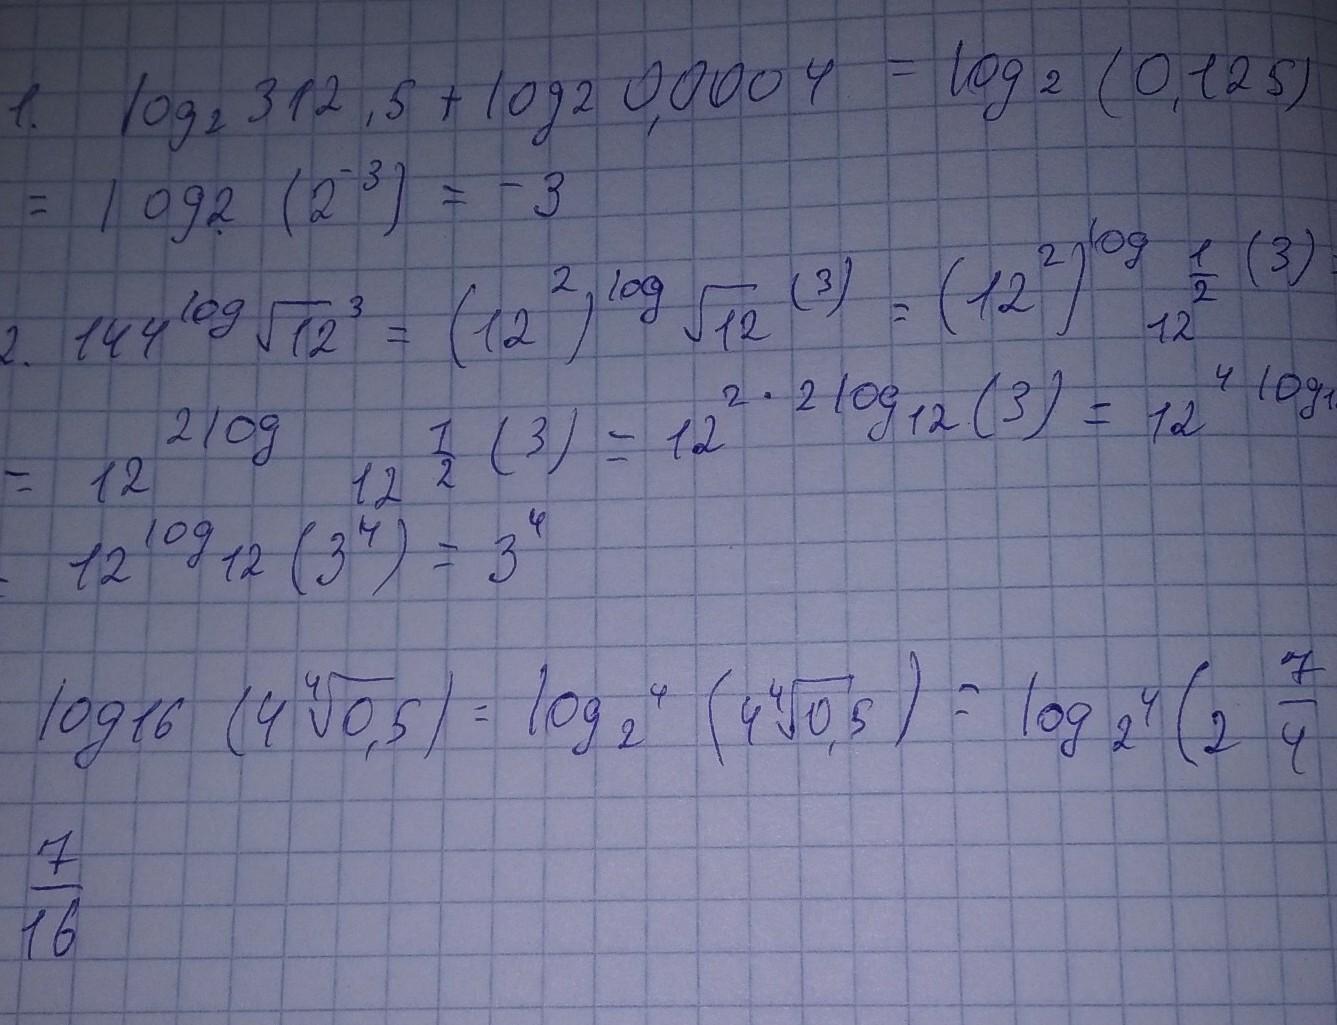 1. log₂ 312,5 + log₂ 0,0004 = log₂ (0,125)
= log₂ (2⁻³) = -3
2. 144^(log_√12 3) = (12²)^(log_√12 (3)) = (12²)^(log_12^(1/2) (3)) =
= 12^(2log_12^(1/2) (3)) = 12^(2·2log₁₂(3)) = 12^(4 log₁
= 12^(log₁₂(3⁴)) = 3⁴
log₁₆ (4⁴√0,5) = log₂⁴ (4⁴√0,5) = log₂⁴ (2^(7/4)
7/16